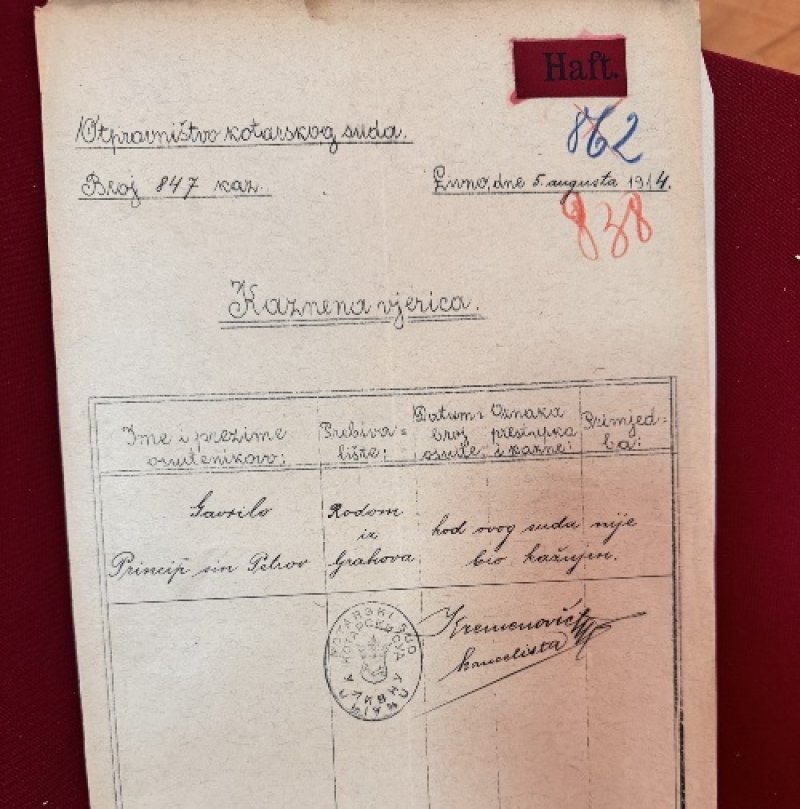 Haft.
862
Otpravništvo kotarskog suda.
Broj 847 kaz.
Livno, dne 5. augusta 1914.
838
Kaznena vjerica.
Ime i prezime osudenikovo:
Prebiva=
lište:
Datum i
broj
osude:
Oznaka
prestupka
i kazne:
Primjed=
ba:
Gavrilo
Princip sin Petrov
Rodom
iz
Grahova
kod ovog suda nije
bio kažnjen.
KOTARSKI SUD
U LIVNU
КОТАРСКИ СУД
У ЛИВНУ
Kremenović
kancelista